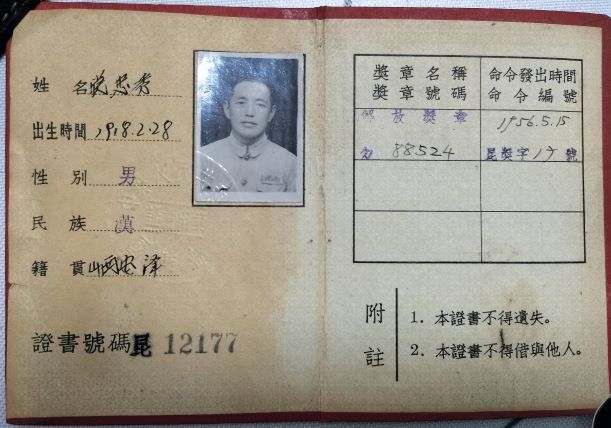 姓 名 忠秀
出生時間 1918.2.28
性 別 男
民 族 漢
籍 貫 山西安澤
證書號碼昆 12177
獎章名稱
獎章號碼
命令發出時間
命令編號
解放獎章
1956.5.15
88524
昆獎字1号號
附註
1. 本證書不得遺失。
2. 本證書不得借與他人。